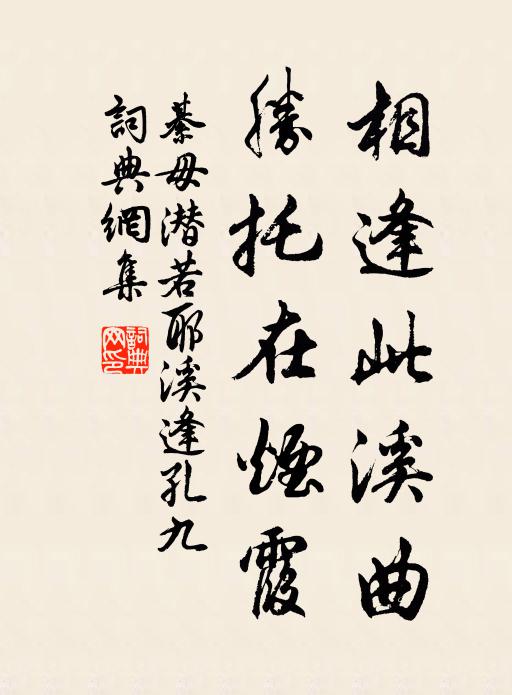 相逢此溪曲
勝托在煙霞
綦毋潛若耶溪逢孔九
詞典網集
詞典网印